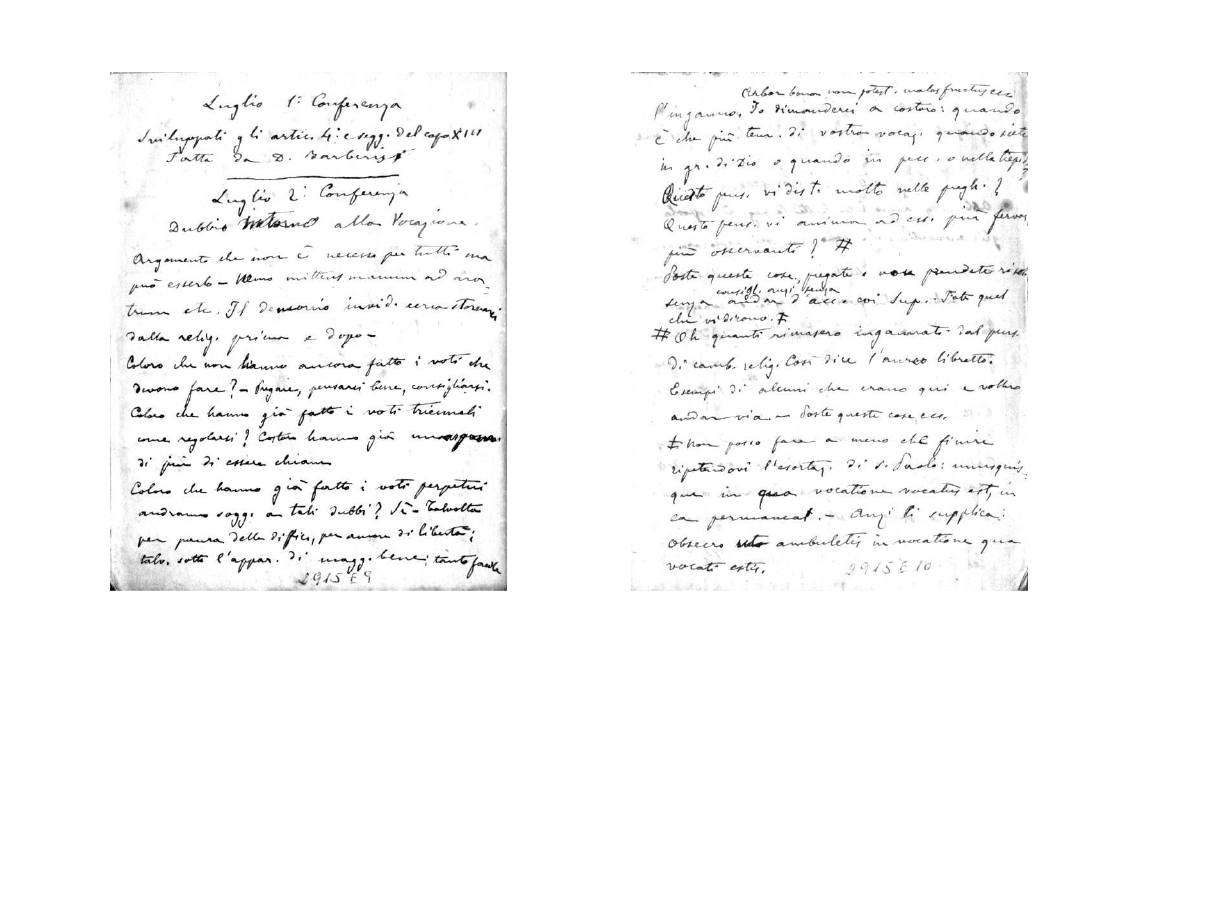 Luglio 1ª Conferenza
Sviluppati gli artic. 4: e segg. del capo XIII
Fatta da D. Barberis
Luglio 2ª Conferenza
Dubbio intorno alla Vocazione.
Argomento che non è necess. per tutti ma
può esserlo – Nemo mittens manum ad ara-
trum etc. Il demonio insid. cerca stornarvi
dalla relig. prima e dopo –
Coloro che non hanno ancora fatto i voti che
devono fare? – Pregare, pensarci bene, consigliarsi.
Coloro che hanno già fatto i voti triennali
come regolarsi? Costoro hanno già un
di più di essere chiam
Coloro che hanno già fatto i voti perpetui
andranno sogg. a tali dubbi? Sì – Talvolta
per paura delle diffic., per amore di libertà;
talv. sotto l'appar. di magg. bene; tanto facile
2915 E 9
Arbor bona non potest. malos fructus ecc
l'inganno. Io dimanderei a costoro: quando
è che più tem. di vostra vocaz. quando siete
in gr. di Dio o quando in pecc. o nella tiepid.
Questo pens. vi dist. molto nelle pregh.?
Questo pens. vi anima ad ess. più fervor.
più osservanti? #
Poste queste cose, pregate e non prendete risol.
consigl. anzi senza
senza andar d'acc. coi Sup. Fate quel
che vi diranno. ‡
# Oh quanti rimasero ingannati dal pens.
di camb. relig. Così dice l'aureo libretto.
Esempi di alcuni che erano qui e vollero
andar via. – Poste queste cose ecc.
‡ Non posso fare a meno che finire
ripetendovi l'esortaz. di S. Paolo: unusquis-
que in qua vocatione vocatus est, in
ea permaneat. – Anzi li supplica:
obsecro ambuletis in vocatione qua
vocati estis.
2915 E 10